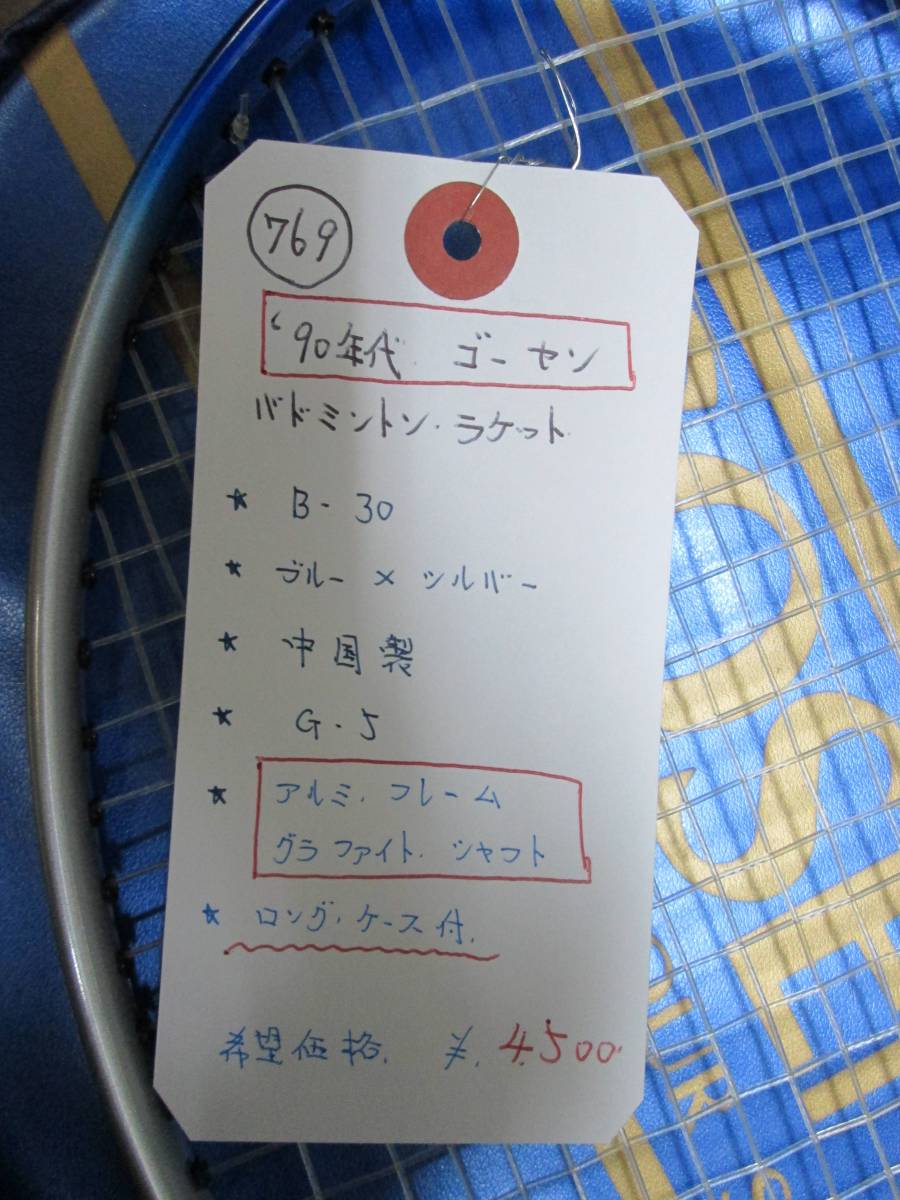 769
'90年代 ゴーセン
バドミントン・ラケット
★ B-30
★ ブルー × シルバー
★ 中国製
★ G-5
★ アルミ・フレーム
グラファイト・シャフト
★ ロング・ケース付.
希望価格. ¥.4,500.